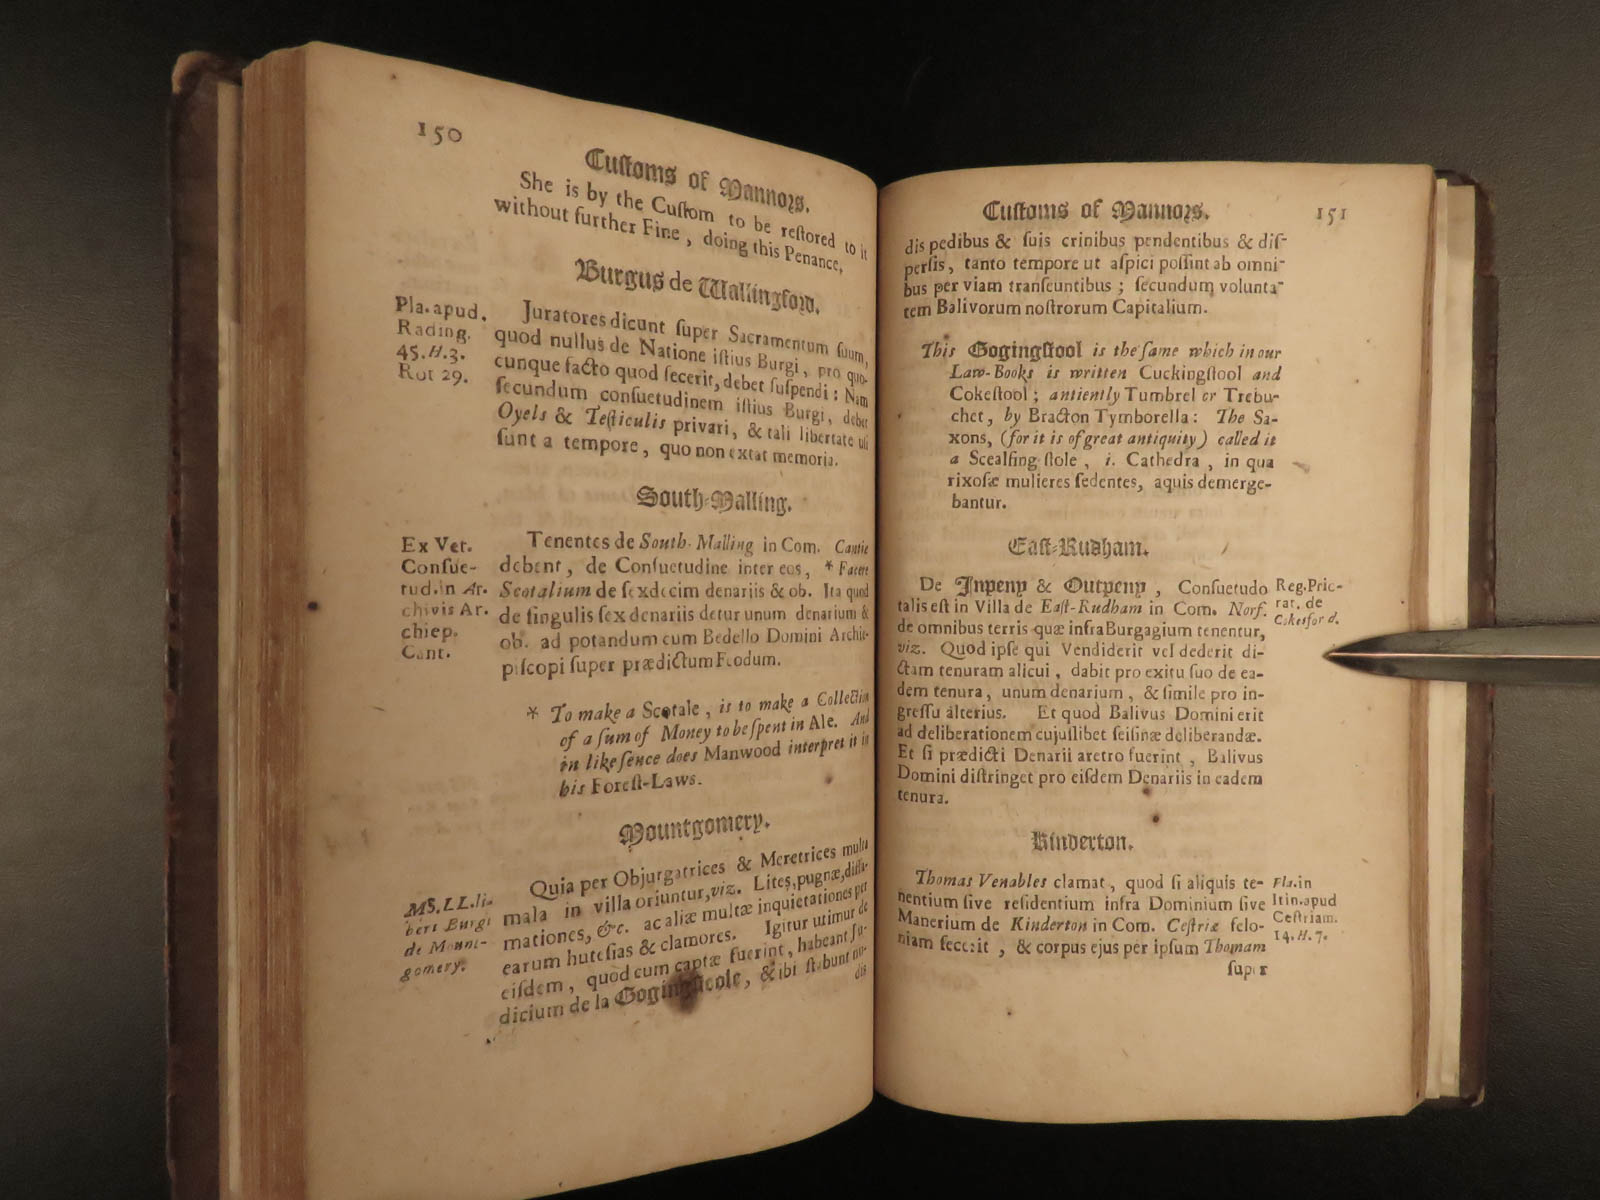 150
Cuſtoms of Mannors.
She is by the Cuſtom to be reſtored to it
without further Fine, doing this Penance,
Burgus de Wallingford.
Pla. apud.
Rading.
45. H. 3.
Rot 29.
Juratores dicunt ſuper Sacramentum ſuum,
quod nullus de Natione iſtius Burgi, pro quo-
cunque facto quod fecerit, debet ſuſpendi: Nam
ſecundum conſuetudinem iſtius Burgi, debet
Oyels & Teſticulis privari, & tali libertate uſi
ſunt a tempore, quo non extat memoria.
South-Malling.
Ex Vet.
Conſue-
tud. in Ar.
chivis Ar.
chiep.
Cant.
Tenentes de South-Malling in Com. Cantie
debent, de Conſuetudine inter eos, * Facere
Scotalium de ſexdecim denariis & ob. Ita quod
de ſingulis ſex denariis detur unum denarium &
ob. ad potandum cum Bedello Domini Archie-
piſcopi ſuper prædictum Feodum.
* To make a Scotale, is to make a Collection
of a ſum of Money to be ſpent in Ale. And
in like ſence does Manwood interpret it in
his Foreſt-Laws.
Mountgomery.
MS. LL. li-
beri Burgi
de Mount-
gomery.
Quia per Objurgatrices & Meretrices multa
mala in villa oriuntur, viz. Lites, pugnæ, diffa-
mationes, &c. ac aliæ multæ inquietationes per
earum huteſias & clamores. Igitur utimur de
eiſdem, quod cum captæ fuerint, habeant Ju-
dicium de la Gogingſtoole, & ibi ſtabunt nu-
dis
Cuſtoms of Mannors.
151
dis pedibus & ſuis crinibus pendentibus & diſ-
perſis, tanto tempore ut aſpici poſſint ab omni-
bus per viam tranſeuntibus; ſecundum volunta-
tem Balivorum noſtrorum Capitalium.
This Gogingſtool is the ſame which in our
Law-Books is written Cuckingſtool and
Cokeſtool; antiently Tumbrel or Trebu-
chet, by Bracton Tymborella: The Sa-
xons, (for it is of great antiquity) called it
a Scealfing ſtole, i. Cathedra, in qua
rixoſæ mulieres ſedentes, aquis demerge-
bantur.
Eaſt-Rudham.
De Inpeny & Outpeny, Conſuetudo
talis eſt in Villa de Eaſt-Rudham in Com. Norf.
de omnibus terris quæ infra Burgagium tenentur,
viz. Quod ipſe qui Vendiderit vel dederit di-
ctam tenuram alicui, dabit pro exitu ſuo de ea-
dem tenura, unum denarium, & ſimile pro in-
greſſu alterius. Et quod Balivus Domini erit
ad deliberationem cujuſlibet ſeiſinæ deliberandæ.
Et ſi prædicti Denarii aretro fuerint, Balivus
Domini diſtringet pro eiſdem Denariis in eadem
tenura.
Reg. Prio-
rat. de
Cokesford.
Kinderton.
Thomas Venables clamat, quod ſi aliquis te-
nentium ſive reſidentium infra Dominium ſive
Manerium de Kinderton in Com. Ceſtriæ felo-
niam fecerit, & corpus ejus per ipſum Thomam
ſuper
Pla. in
Itin. apud
Ceſtriam.
14. H. 7.